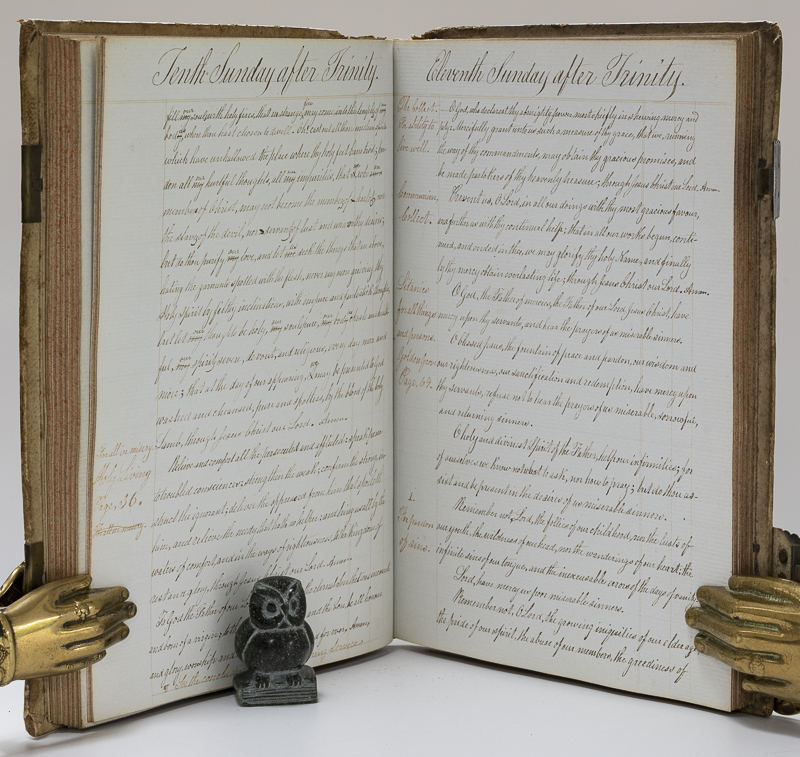 Tenth Sunday after Trinity.
fill our souls with holy fires, that no strange fire may come into the temples of our
bodies, where thou hast chosen to dwell. Oh! cast out all those
which have unhallowed the place where thy holy feet have trod; par-
don all our hurtful thoughts, all our impurities, that we who are
members of Christ, may not become the members of
the slaves of the devil, nor servants of lust and unworthy desires;
but do thou purify our love, and let us seek the things that are above,
hating the garments spotted with the flesh, never any more grieving thy
Holy Spirit by filthy inclinations, with impure and fantastic thoughts;
but let our thoughts be holy, our souls pure, our bodies chaste and health-
ful, our spirits severe, devout, and religious, every day more and
more; that at the day of our appearing, we may be presented to God
washed and cleansed, pure and spotless, by the blood of the holy
Lamb, through Jesus Christ our Lord. Amen.
For all in misery
Holy Living
Page, 36.
Relieve and comfort all the persecuted and afflicted: speak peace
to troubled consciences; strengthen the weak; confirm the strong; in-
struct the ignorant; deliver the oppressed from him that spoileth
him, and relieve the needy that hath no helper: cause bring us all by the
waters of comfort, and in the ways of righteousness, to the Kingdom of
rest and glory, through Jesus Christ our Lord. Amen.
To God the Father of our
and son of a virgin; to the and the Son, be all honour
and glory, worship, and for ever. Amen.
Eleventh Sunday after Trinity.
The Collect.
The ability to
live well.
O God, who declarest thy almighty power, most chiefly in shewing mercy and
pity; Mercifully grant unto us such a measure of thy grace, that we, running
the way of thy commandments, may obtain thy gracious promises, and
be made partakers of thy heavenly treasure; through Jesus Christ our Lord. Amen.
Communion,
Collect.
Prevent us, O Lord, in all our doings with thy most gracious favour,
and further us with thy continual help; that in all our works begun, conti-
nued, and ended in thee, we may glorify thy holy Name, and finally
by thy mercy obtain everlasting life; through Jesus Christ our Lord. Amen.
Litanies
for all things
and persons.
Golden Grove
Page, 64.
O God, the Father of mercies, the Father of our Lord Jesus Christ, have
mercy upon thy servants, and hear the prayers of us miserable sinners.
O blessed Jesus, the fountain of peace and pardon, our wisdom and
our righteousness, our sanctification and redemption, have mercy upon
thy servants, refuse not to hear the prayers of us miserable, sorrowful,
and returning sinners.
O holy and divinest Spirit of the Father, help our infirmities; for
of ourselves we know not what to ask, nor how to pray; but do thou as-
sist and be present in the desires of us miserable sinners.
1.
For pardon
of sins.
Remember not, Lord, the follies of our childhood, nor the lusts of
our youth; the wildness of our head, nor the wanderings of our heart; the
infinite sins of our tongue, and the inexcusable errors of the days of vanity.
Lord, have mercy on poor miserable sinners.
Remember not, O Lord, the growing iniquities of our older age,
the pride of our spirit, the abuse of our members, the greediness of